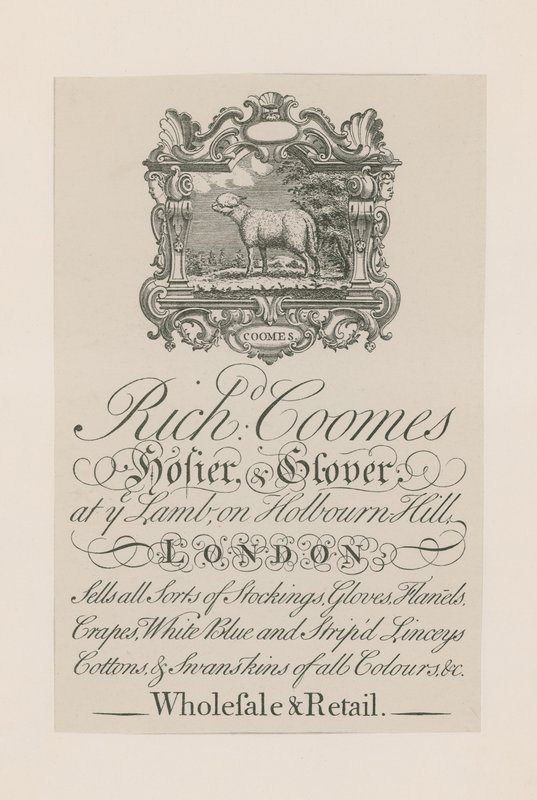 COOMES.
Richd. Coomes
Hoſier, & Glover;
at ye Lamb, on Holbourn-Hill,
LONDON
Sells all Sorts of Stockings, Gloves, Flan̄els,
Crapes, White Blue and Strip'd Linceys
Cottons, & Swanskins of all Colours, &c.
Wholeſale & Retail.